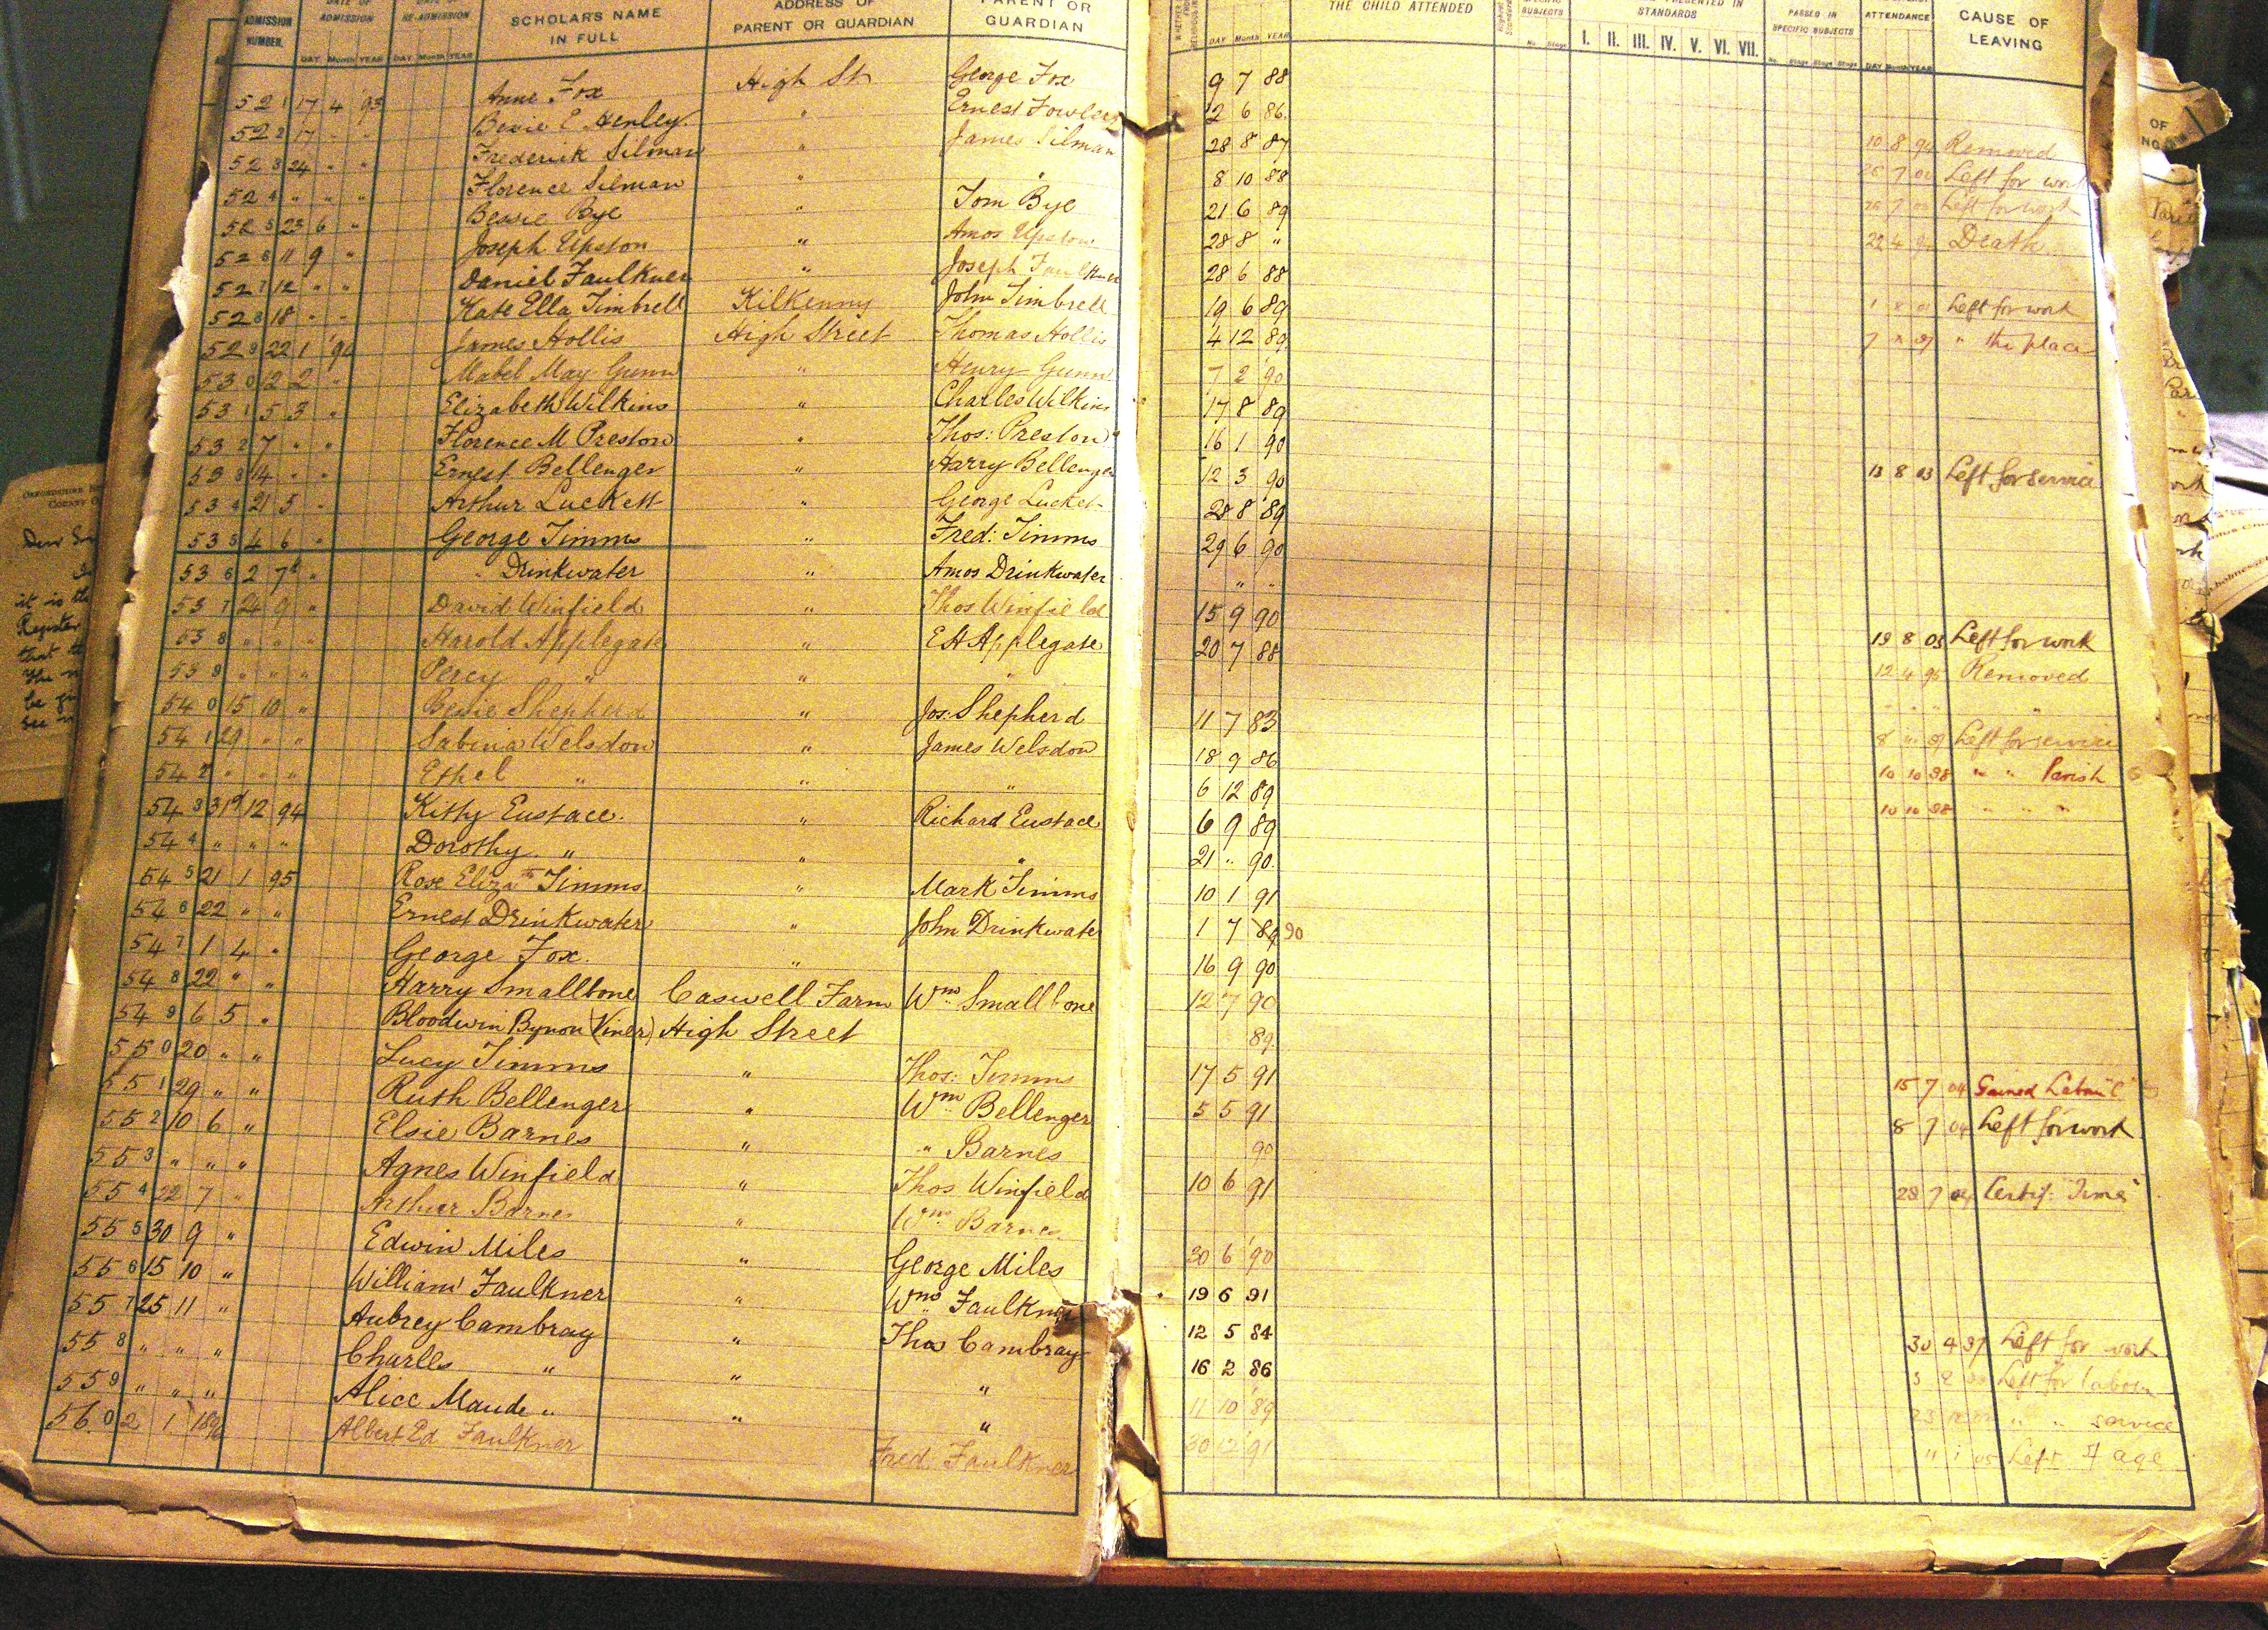 ADMISSION NUMBER.
ADMISSION
RE-ADMISSION
SCHOLAR'S NAME IN FULL
ADDRESS OF PARENT OR GUARDIAN
PARENT OR GUARDIAN
THE CHILD ATTENDED
SUBJECTS
STANDARDS
I. II. III. IV. V. VI. VII.
PASSED IN SPECIFIC SUBJECTS
ATTENDANCE
CAUSE OF LEAVING
DAY Month YEAR DAY Month YEAR
DAY Month YEAR
521 17 4 93 Anne Fox High St George Fox 9 7 88
522 17 " " Bessie E Henley " Ernest Fowler 2 6 86
523 24 " " Frederick Silman " James Silman 28 8 87 Removed
524 " " " Florence Silman " " 8 10 88 Left for work
525 23 6 " Bessie Bye " Tom Bye 21 6 89 Left for work
526 11 9 " Joseph Upston " Amos Upston 28 8 " Death
527 12 " " Daniel Faulkner " Joseph Faulkner 28 6 88
528 18 " " Kate Ella Timbrell Kilkenny John Timbrell 19 6 89 Left for work
529 22 1 '94 James Hollis High Street Thomas Hollis 4 12 89 " the place
530 12 2 " Mabel May Gunn " Henry Gunn 7 2 90
531 5 3 " Elizabeth Wilkins " Charles Wilkins 17 8 89
532 7 " " Florence M Preston " Thos: Preston 16 1 90
533 14 " " Ernest Bellenger " Harry Bellenger 12 3 90 13 8 03 Left for service
534 21 5 " Arthur Luckett " George Luckett 28 8 89
535 4 6 " George Timms " Fred: Timms 29 6 90
536 2 7 " " Drinkwater " Amos Drinkwater " "
537 24 9 " David Winfield " Thos Winfield 15 9 90
538 " " " Harold Applegate " E H Applegate 20 7 88 Left for work
539 " " " Percy " " " Removed
540 15 10 " Bessie Shepherd " Jos: Shepherd 11 7 83
541 29 " " Sabina Welsdon " James Welsdon 18 9 86 Left for service
542 " " " Ethel " " " 6 12 89 10 10 98 " " Parish
543 31 12 94 Kitty Eustace " Richard Eustace 6 9 89 10 10 98 " " "
544 " " " Dorothy " " " 21 " 90
545 21 1 95 Rose Elizath Timms " Mark Timms 10 1 91
546 22 " " Ernest Drinkwater " John Drinkwate 1 7 89 90
547 1 4 " George Fox " 16 9 90
548 22 " " Harry Smallbone Caswell Farm Wm Smallbone 12 7 90
549 6 5 " Bloodwin Bynon (Viner) High Street 89
550 20 " " Lucy Timms " Thos: Timms 17 5 91 15 7 04 Gained
551 29 " " Ruth Bellenger " Wm Bellenger 5 5 91 8 7 04 Left for work
552 10 6 " Elsie Barnes " " Barnes 90
553 " " " Agnes Winfield " Thos Winfield 10 6 91 28 7 04 Certif:
554 22 7 " Arthur Barnes " Wm Barnes
555 30 9 " Edwin Miles " George Miles 30 6 '90
556 15 10 " William Faulkner " Wm Faulkner 19 6 91
557 25 11 " Aubrey Cambray " Thos Cambray 12 5 84 30 4 97 Left for work
558 " " " Charles " " " 16 2 86 Left for labour
559 " " " Alice Maude " " " 11 10 89 " " service
560 2 1 1896 Albert Ed Faulkner Fred Faulkner 30 12 91 Left age